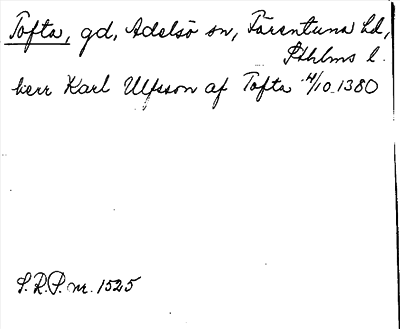 Tofta, gd, Adelsö sn, Färentuna hd,
Sthlms l.
herr Karl Ulfsson af Tofta 4/10 1380
S.R.P. nr. 1525